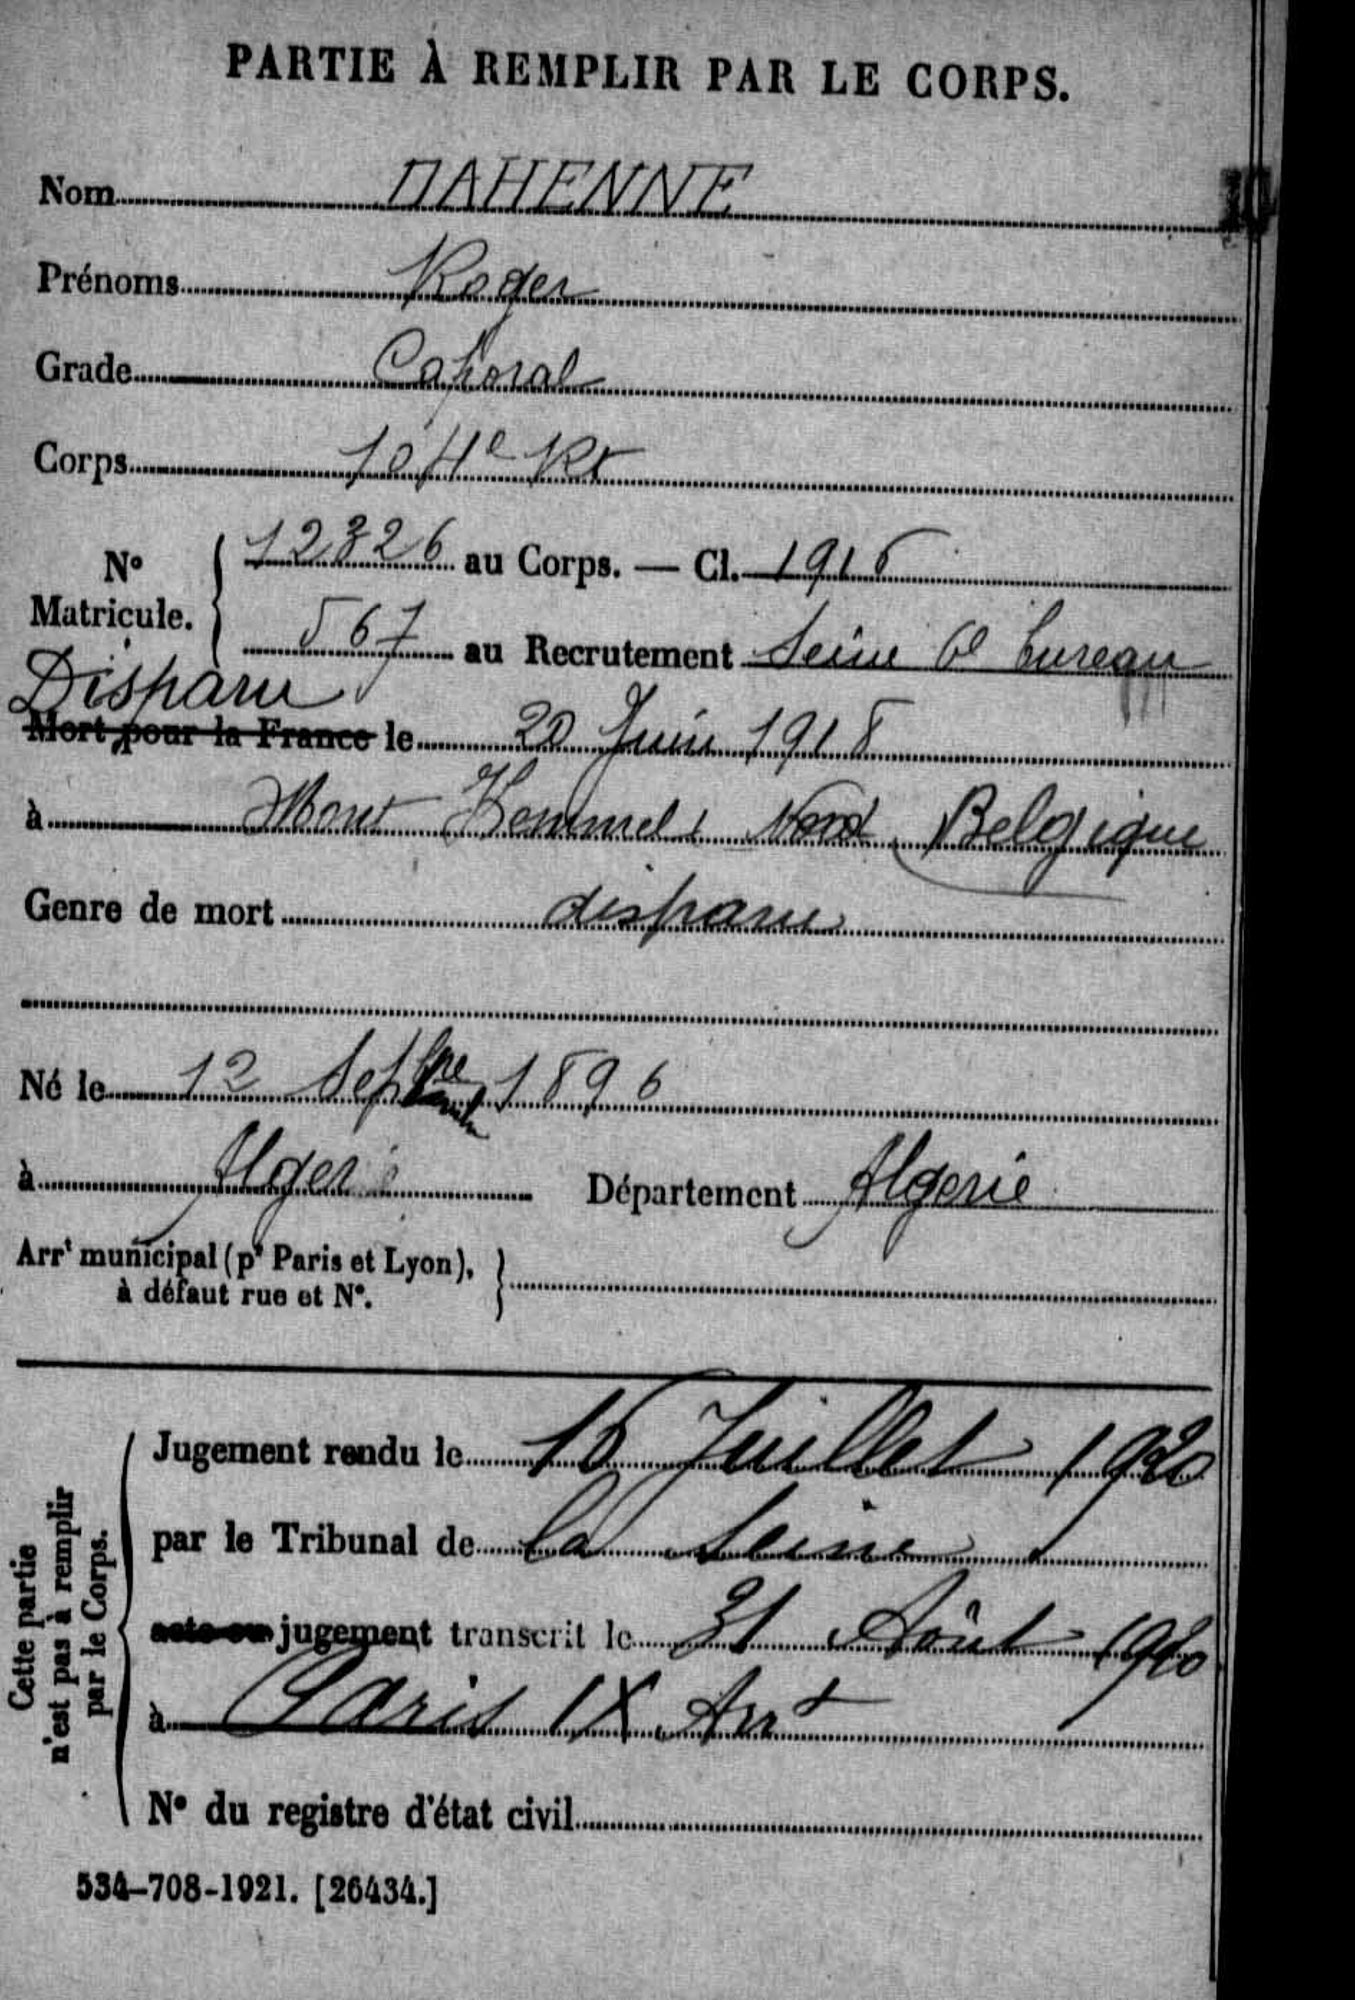 PARTIE À REMPLIR PAR LE CORPS.
Nom DAHENNE
Prénoms Roger
Grade Caporal
Corps 104e Rt
No Matricule. { 12326 au Corps. — Cl. 1916
567 au Recrutement Seine 6e bureau
Disparu
Mort pour la France le 20 Juin 1918
à Mont Kemmel Nord Belgique
Genre de mort disparu
Né le 12 Septbre 1896
à Alger Département Algerie
Arrt municipal (pr Paris et Lyon), à défaut rue et No. }
Cette partie n'est pas à remplir par le Corps.
Jugement rendu le 15 Juillet 1920
par le Tribunal de la Seine
acte ou jugement transcrit le 31 Août 1920
à Paris IX Arrt
No du registre d'état civil
534-708-1921. [26434.]